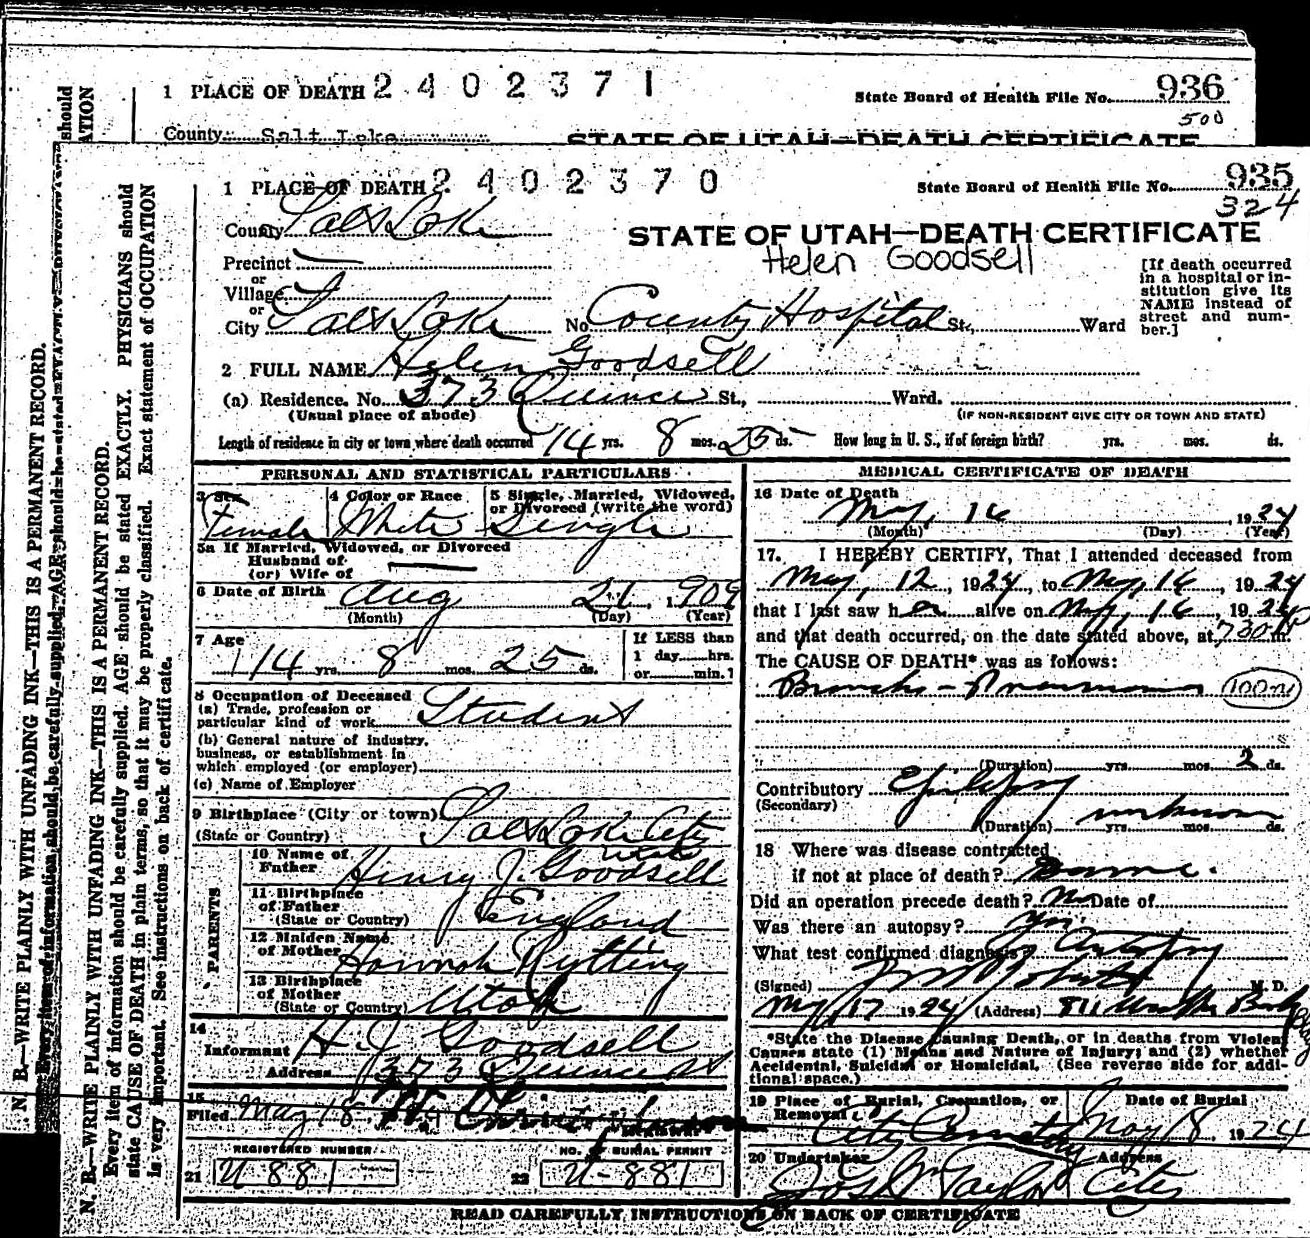 1 PLACE OF DEATH 2 4 0 2 3 7 1
State Board of Health File No. 936
500
County Salt Lake
STATE OF UTAH—DEATH CERTIFICATE
should
ATION
N. B.—WRITE PLAINLY WITH UNFADING INK—THIS IS A PERMANENT RECORD.
N. B.—WRITE PLAINLY WITH UNFADING INK—THIS IS A PERMANENT RECORD.
Every item of information should be carefully supplied. AGE should be stated EXACTLY. PHYSICIANS should
state CAUSE OF DEATH in plain terms, so that it may be properly classified. Exact statement of OCCUPATION
is very important. See instructions on back of certificate.
1 PLACE OF DEATH 2 4 0 2 3 7 0
State Board of Health File No. 935
324
County Salt Lake
STATE OF UTAH—DEATH CERTIFICATE
Helen Goodsell
Precinct
or
Village
or
City Salt Lake No. County Hospital St., Ward
[If death occurred
in a hospital or in-
stitution give its
NAME instead of
street and num-
ber.]
2 FULL NAME Helen Goodsell
(a) Residence. No. 373 Quince St., Ward.
(Usual place of abode) (IF NON-RESIDENT GIVE CITY OR TOWN AND STATE)
Length of residence in city or town where death occurred 14 yrs. 8 mos. 25 ds. How long in U. S., if of foreign birth? yrs. mos. ds.
PERSONAL AND STATISTICAL PARTICULARS
3 Sex 4 Color or Race 5 Single, Married, Widowed,
or Divorced (write the word)
Female White Single
5a If Married, Widowed, or Divorced
Husband of
(or) Wife of
6 Date of Birth Aug 21, 1909
(Month) (Day) (Year)
7 Age If LESS than
1 day hrs.
14 yrs. 8 mos. 25 ds. or min.
8 Occupation of Deceased
(a) Trade, profession or
particular kind of work Student
(b) General nature of industry,
business, or establishment in
which employed (or employer)
(c) Name of Employer
9 Birthplace (City or town) Salt Lake City
(State or Country) Utah
PARENTS
10 Name of
Father Henry J. Goodsell
11 Birthplace
of Father England
(State or Country)
12 Maiden Name
of Mother Hannah Rytting
13 Birthplace
of Mother
(State or Country) Utah
14
Informant H. J. Goodsell
Address 373 Quince St
15
Filed May 18
REGISTERED NUMBER
21 U 881
NO. OF BURIAL PERMIT
22 U-881
MEDICAL CERTIFICATE OF DEATH
16 Date of Death
May, 16, 1924
(Month) (Day) (Year)
17. I HEREBY CERTIFY, That I attended deceased from
May, 12, 1924, to May, 16, 1924
that I last saw her alive on May, 16, 1924
and that death occurred, on the date stated above, at 730 P m.
The CAUSE OF DEATH* was as follows:
Broncho-Pneumonia
(Duration) yrs. mos. 2 ds.
Contributory Epilepsy
(Secondary)
unknown
(Duration) yrs. mos. ds.
18 Where was disease contracted
if not at place of death? Same.
Did an operation precede death? No Date of
Was there an autopsy? Yes.
What test confirmed diagnosis? Autopsy
(Signed) M. D.
May 17 1924 (Address) 811
*State the Disease Causing Death, or in deaths from Violent
Causes state (1) Means and Nature of Injury; and (2) whether
Accidental, Suicidal or Homicidal. (See reverse side for addi-
tional space.)
19 Place of Burial, Cremation, or Date of Burial
Removal
City Cemetery May 18, 1924
20 Undertaker Address
Jos Wm Taylor City
READ CAREFULLY INSTRUCTIONS ON BACK OF CERTIFICATE